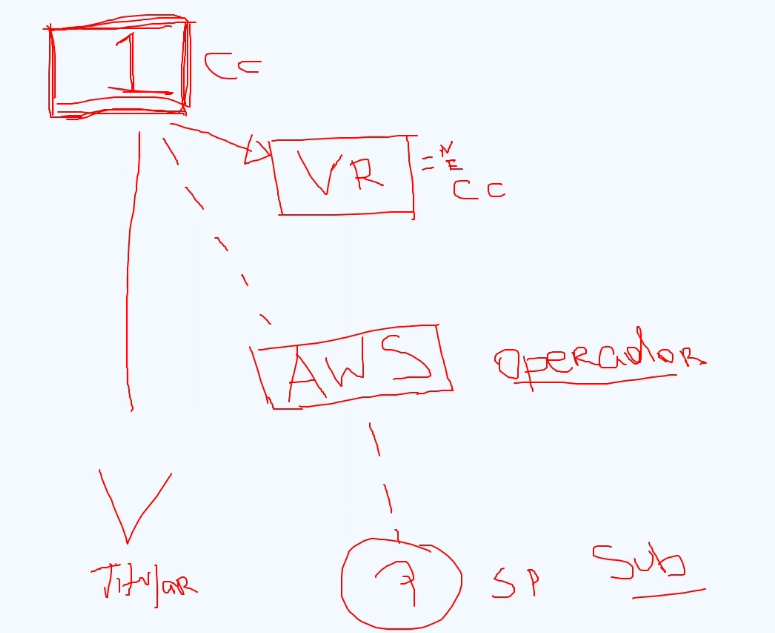 1 CC
VR = NE
CC
AWS operador
Titular
? SP Sub